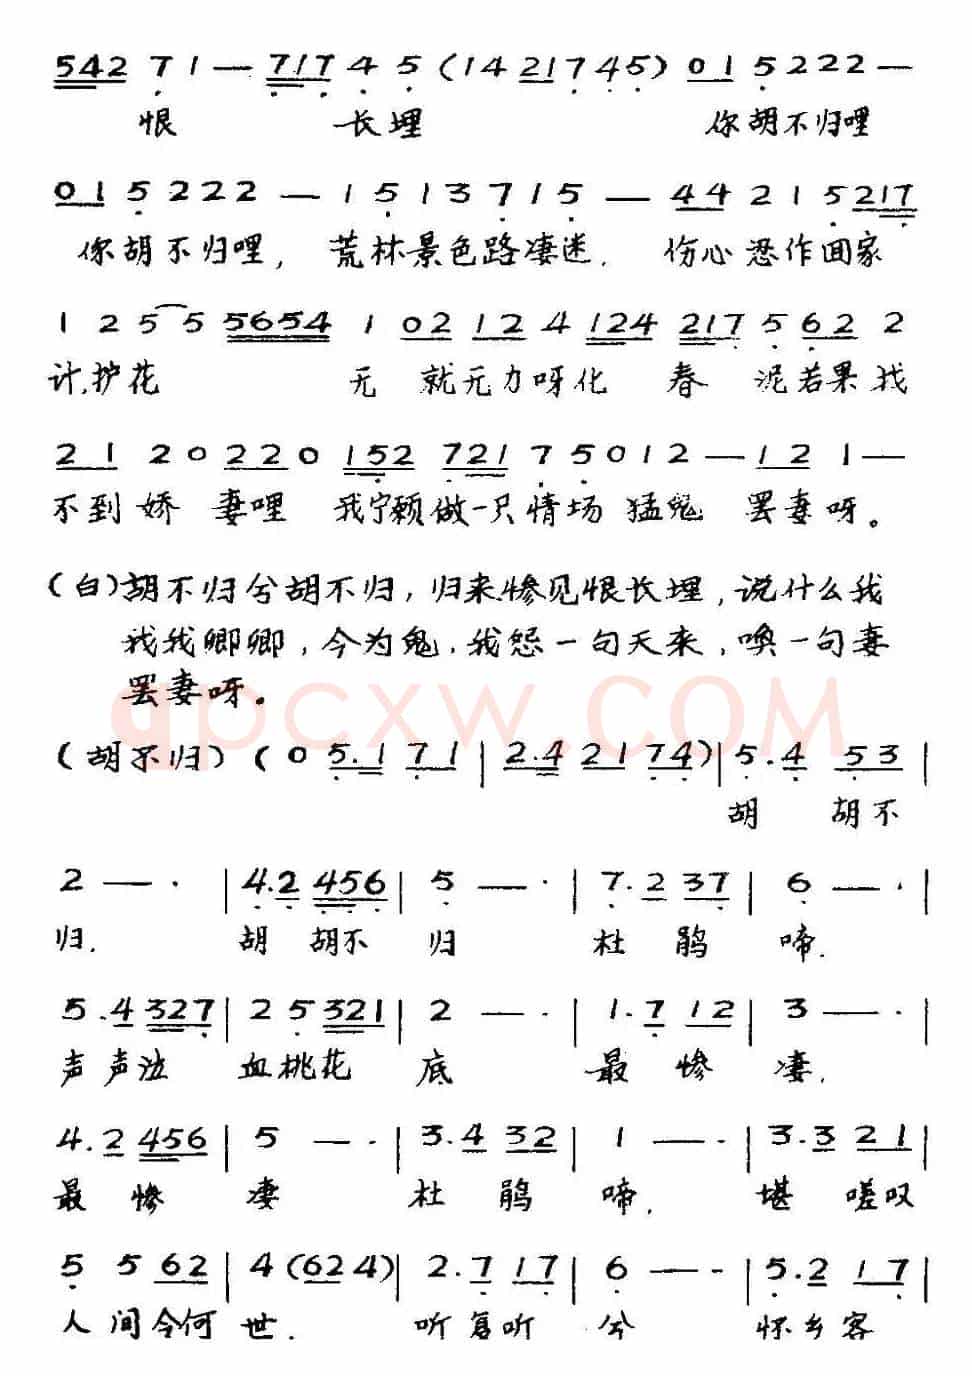 542 7 1 — 717 4 5 (14 21745) 01 5 222 —
恨 长埋 你胡不归哩
01 5 222 — 1 5 1 3 7 1 5 — 44 2 1 5 217
你胡不归哩, 荒林景色路凄迷. 伤心恐作回家
1 2 5 5 5654 1 02 12 4 124 217 5 62 2
计.护花 无 就无力呀化 春 泥若果找
21 20 220 152 721 7 5 0 1 2 — 12 1 —
不到娇 妻哩 我宁愿做一只情场 猛鬼 罢妻呀。
(白)胡不归兮胡不归, 归来惨见恨长埋, 说什么我
我我卿卿, 今为鬼. 我怨一句天来, 唤一句妻
罢妻呀。
qpcxw.com
(胡不归) (0 5.1 71 | 2.4 21 74) | 5.4 53 |
胡 胡不
2 — · | 4.2 456 | 5 — · | 7.2 37 | 6 — · |
归. 胡 胡不 归 杜 鹃 啼.
5.4 327 | 2 5 321 | 2 — · | 1.7 12 | 3 — · |
声声泣 血桃花 底 最 惨 凄.
4.2 456 | 5 — · | 3.4 32 | 1 — · | 3.3 21 |
最 惨 凄 杜 鹃 啼. 堪 嗟叹
5 5 62 | 4 (624) | 2.7 17 | 6 — · | 5.2 17 |
人 间今何 世. 听 复听 兮 怀乡客